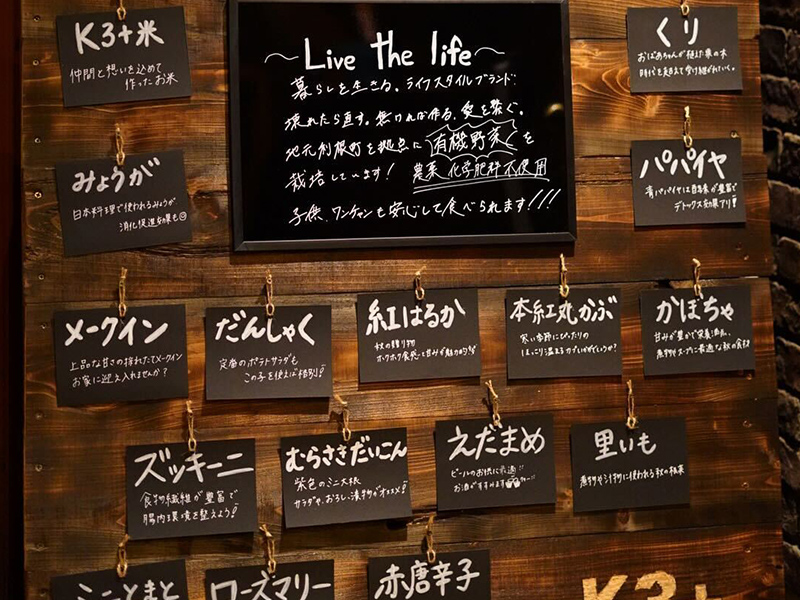 K3+米
仲間と想いを込めて
作ったお米
〜Live the life〜
暮らしを生きる。ライフスタイルブランド。
壊れたら直す。無ければ作る。愛を繋ぐ。
地元利根町を拠点に有機野菜を
栽培しています! 農薬 化学肥料不使用
子供、ワンチャンも安心して食べられます!!!
くり
おばあちゃんが植えた栗の木
時代を超えて受け継がれていく。
みょうが
日本料理で使われるみょうが
消化促進効果も
パパイヤ
青パパイヤは酵素が豊富で
デトックス効果アリ!
メークイン
上品な甘さの採れたてメークイン
お家に迎え入れませんか?
だんしゃく
定番のポテトサラダも
この子を使えば格別!
紅はるか
秋の贈り物
ホクホク食感と甘みが魅力的!
本紅丸かぶ
寒い季節にぴったりの
ほっこり温まるカブいかがでしょうか?
かぼちゃ
甘みが豊かで栄養満点、
煮物やスープに最適な秋の食材
ズッキーニ
食物繊維が豊富で
腸内環境を整えよう!
むらさきだいこん
紫色のミニ大根
サラダや、おろし、漬物がオススメ!
えだまめ
ビールのお供に最適!!
お酒がすすみます
里いも
煮物や汁物に使われる秋の根菜
ミニとまと
ローズマリー
赤唐辛子
K3+